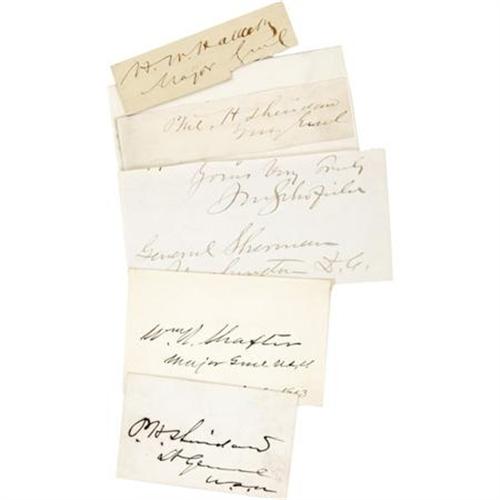 H. W. Halleck
Major Genl
Phil. H Sheridan
Genl
Yours Very Truly
JM Schofield
General Sherman
Washington D.C.
Wm R. Shafter
Major Genl U.S.V
P. H. Sheridan
Lt Genl
U.S.A